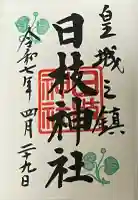 皇城之鎮
日枝神社
令和七年四月二十九日